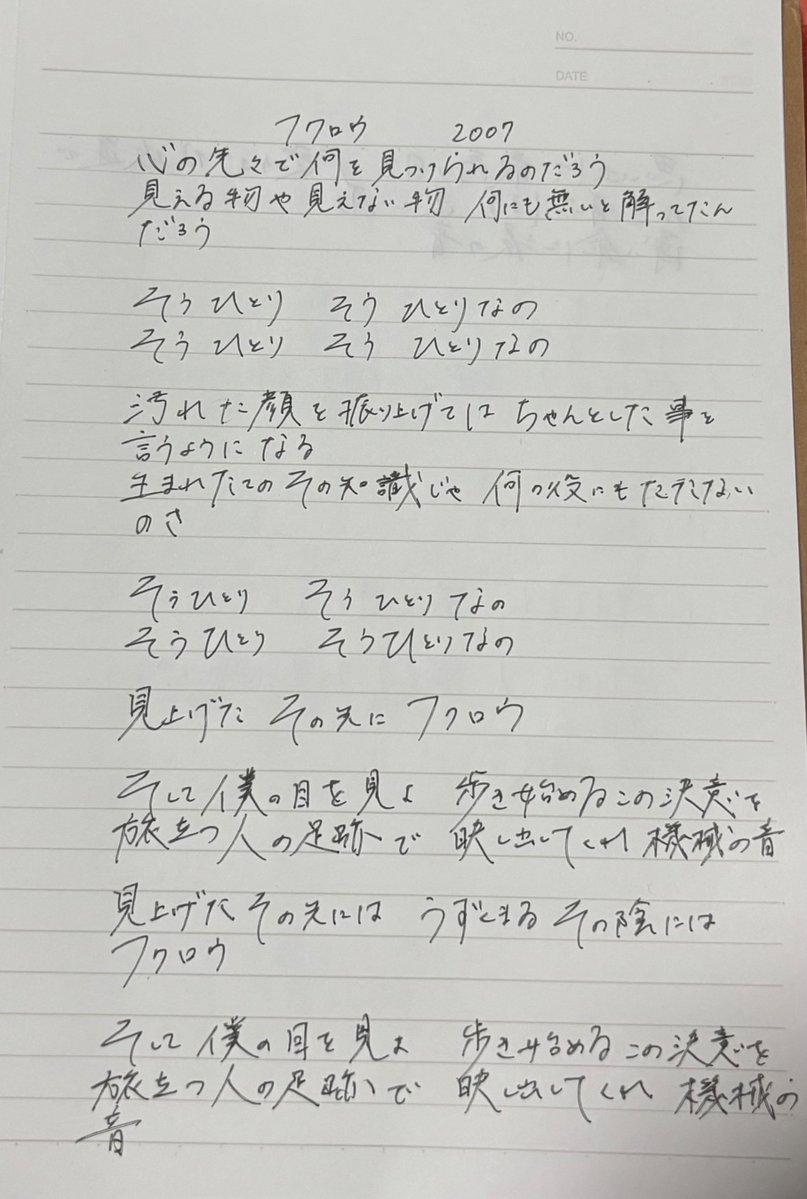 NO.
DATE
フクロウ 2007
心の先々で何を見つけられるのだろう
見える物や見えない物 何にも無いと解ってたん
だろう
そう ひとり そう ひとりなの
そう ひとり そう ひとりなの
汚れた顔を振り上げては ちゃんとした事を
言うようになる
生まれたての その知識じゃ 何の役にもたたない
のさ
そうひとり そう ひとりなの
そうひとり そうひとりなの
見上げた その先に フクロウ
そして僕の目を見よ 歩き始めるこの決意を
旅立つ人の足跡で 映し出してくれ 機械の音
見上げた その先には うずくまる その陰には
フクロウ
そして僕の目を見よ 歩き始めるこの決意を
旅立つ人の足跡で 映し出してくれ 機械の
音